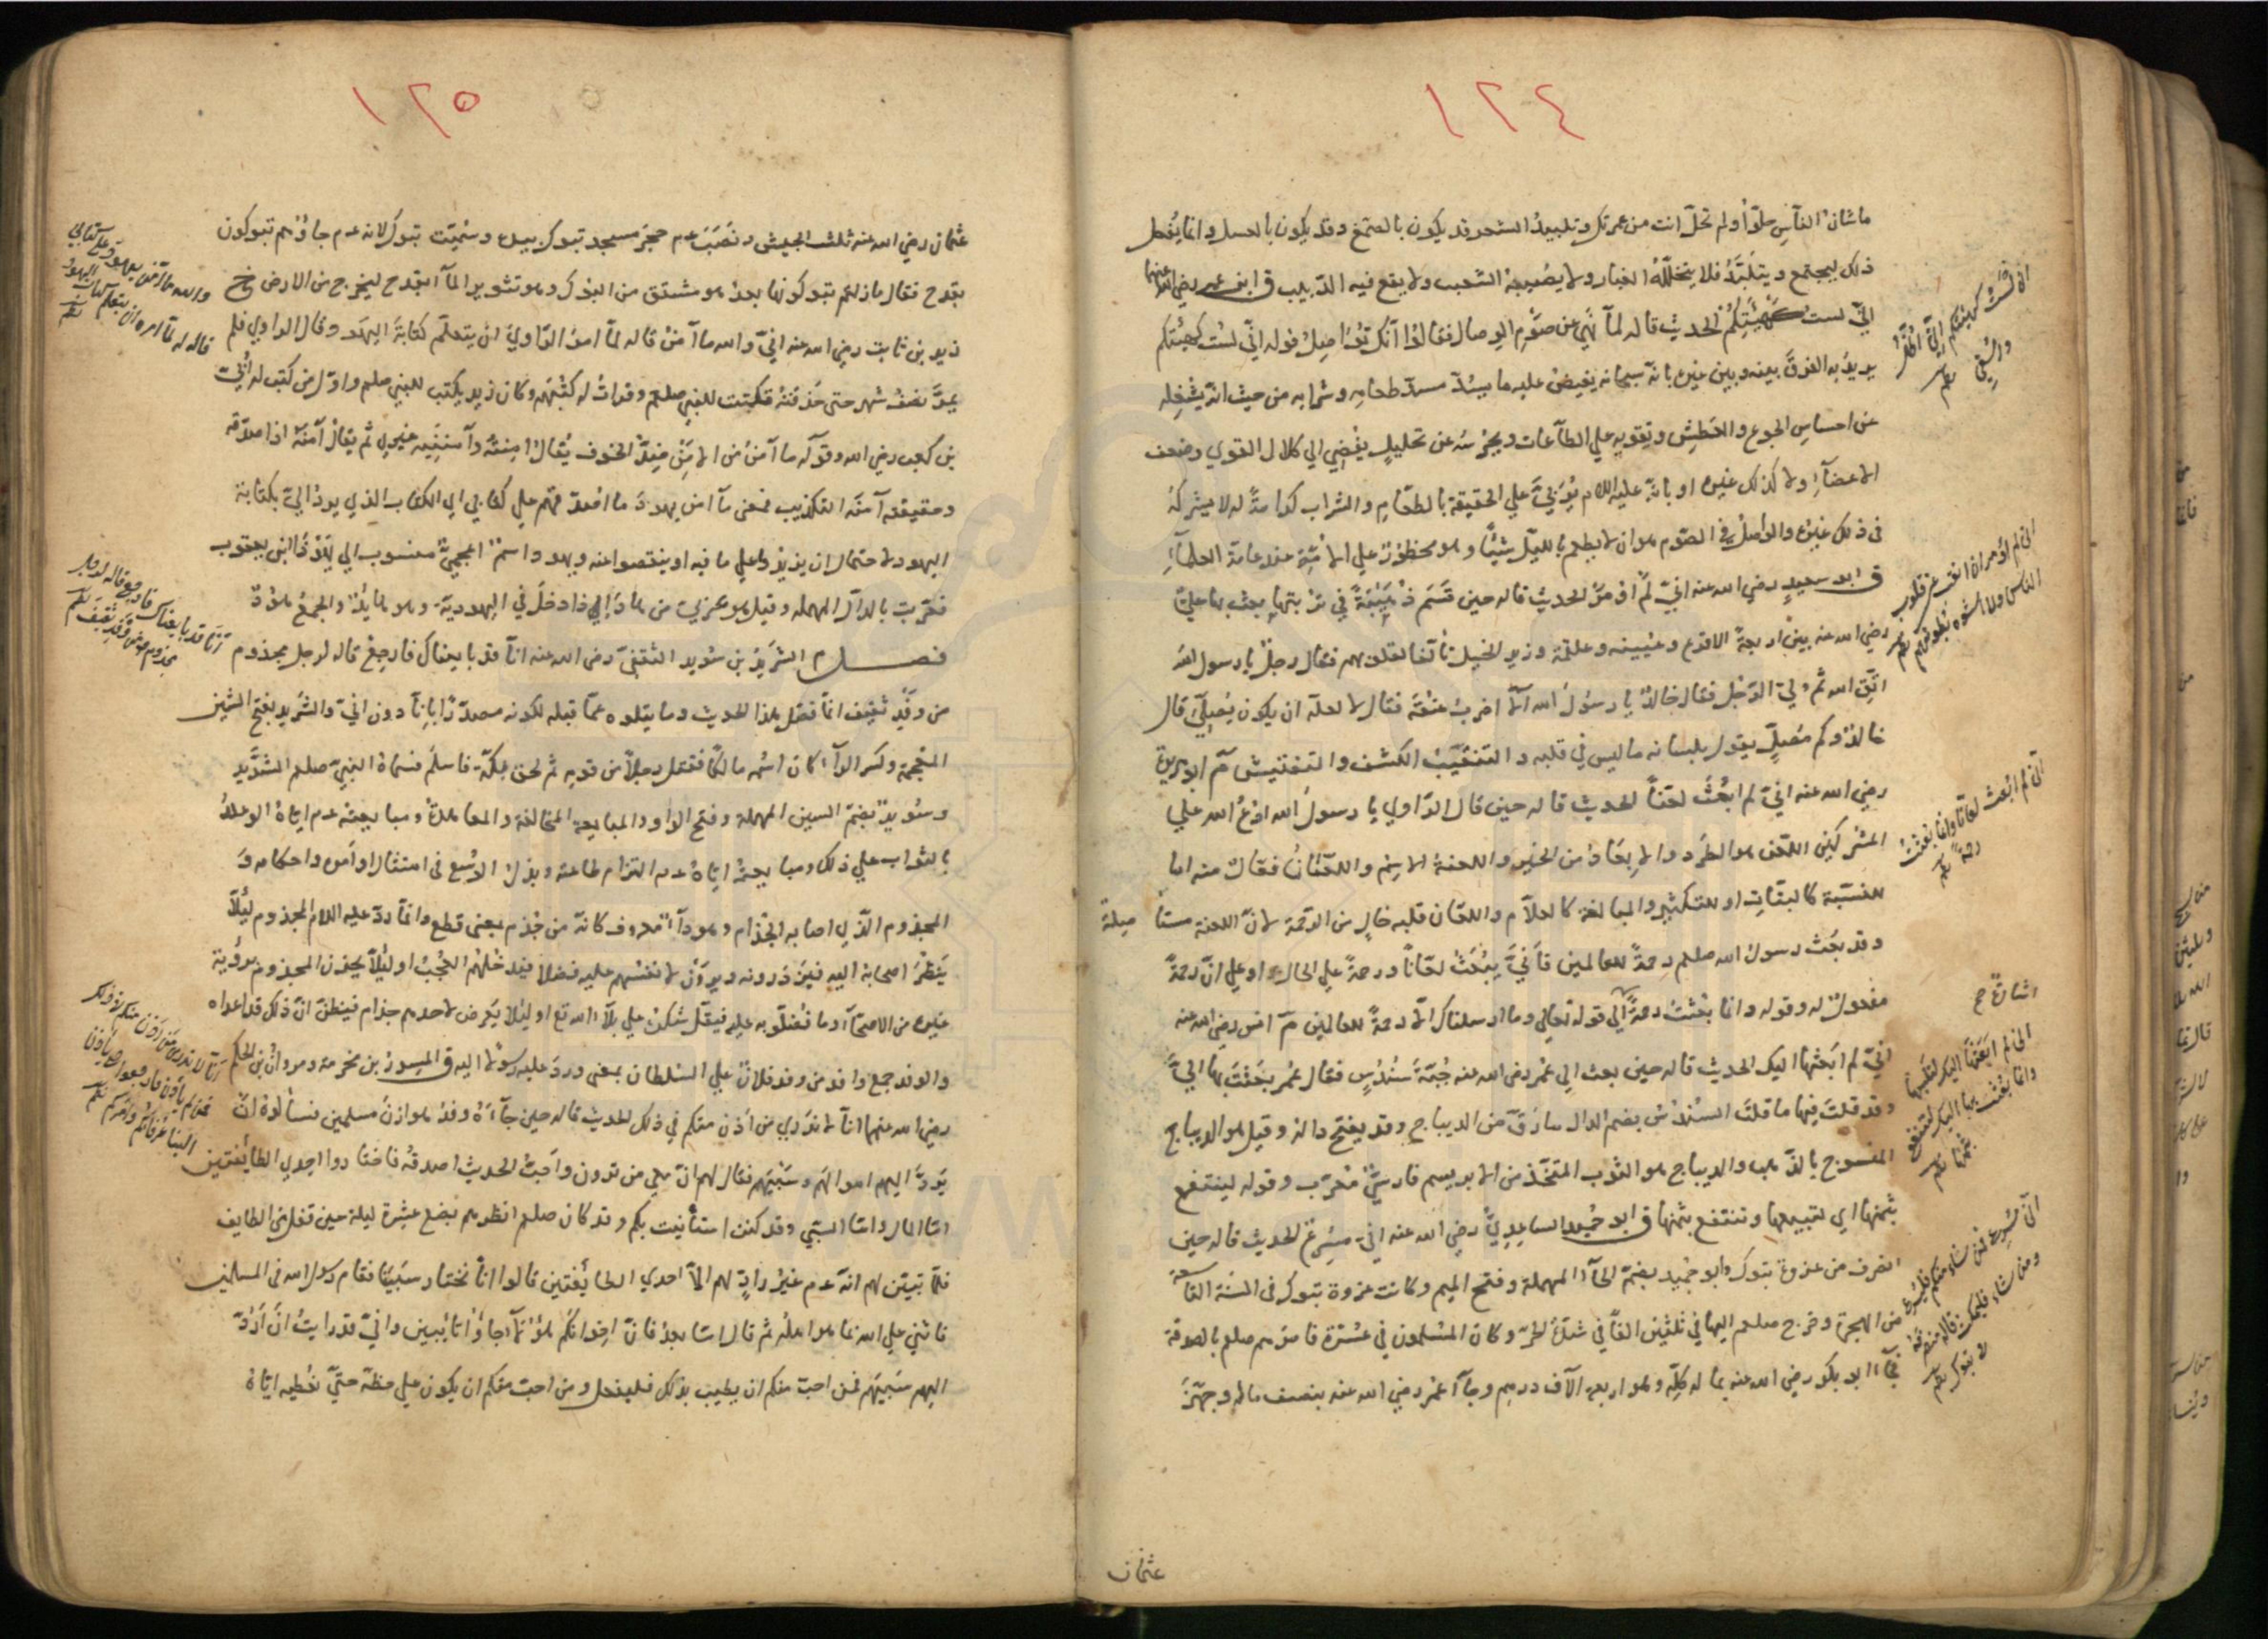 ١٢٤
ما شان الناس حلّوا ولم تحلّ انت من عمرتك وتلبيدُ الشعر قد يكون بالصمغ وقد يكون بالعسل وانما يُفعل
ذلك ليجتمع ويتلبَّدُ فلا يتخلّلُه الغبار ولا يصيبهُ الشعث ولا يقع فيه الدبيب ق ابن عمر رضي الله عنهما
انيّ لست كهيئتكُم الحديث قاله لمّا نهى عن صَوْمِ الوصال فقالوا انّك تُواصِلُ قوله انّي لست كهيئتكم
يريدُ به الفرقَ بينه وبين غيره بانه سبحانه يفيضُ عليه ما يسُدّ مسدّ طعامِه وشرابه من حيث انّه يشغِله
عن احساسِ الجوع والعَطشِ ويقويه علي الطاعات ويحرسُه عن تحليلٍ يفْضِي الي كلال القوي وضعف
الاعضآءِ ولا كذلك غيره او بانّه عليه اللام يُؤتيَ علي الحقيقة بالطعامِ والشراب كرامةً له لا يشركهُ
في ذلك غيرُه والوَاصلُ في الصّوم هو ان لا يطعم بالليل شيئًا وهو محظورٌ علي الامّة عند عامة العلمآءِ
ق ابو سعيدٍ رضي الله عنه انيّ لم اُومَرْ الحديث قاله حين قَسَم ذُهَيْبَةً في تربتها بعث بها عليّ
رضي الله عنه بين اربعةٍ الاقرع وعيينه وعلقمة وزيد الخيل تألفا لقلوبهم فقال رجلٌ يا رسول الله
اتّقِ الله ثم ولّيَ الرّجل فقال خالدٌ يا رسُول الله الا اضربُ عنُقَه فقال لا لعله ان يكون يُصلّي قال
خالدٌ وكم مُصلٍّ يقول بلسانه ما ليس في قلبه والتنقيبُ الكشف والتفتيش م ابو هريرة
رضي الله عنه انيّ لم ابعُثْ لعّانًا الحديث قاله حين قال الرّاوي يا رسولُ الله ادعُ الله علي
المشركين اللعن هو الطرد والابعادُ من الخير واللعنة الاسم واللعّانُ فعّالٌ منه اما
للنسبة كالبتّات او للتكثير والمبالغة كالعلّام واللعّان قلبه خالٍ من الرّحمة لانّ اللعنة منتا
وقد بعَث رسول الله صلعم رحمةً للعالمين فانيّ يبُعَثُ لعّانًا ورحمةً علي الحال او علي انّ رحمةً
مفعولٌ له وقوله وانما بُعثتُ رحمةً الي قوله تعالي وما ارسلناك الا رحمةً للعالمين م انس رضي الله عنه
انيّ لم ابعَثها اليك الحديث قاله حين بعث الي عُمر رضي الله عنه جُبّةَ سُندُسٍ فقال عُمر بعَثتَ بها اليَّ
وقد قلتَ فيها ما قلتَ السُنْدُس بضم الدال مارَقّ من الديباج وقد يفتح داله وقيل هو الديباج
المنسوج بالذهب والديباج هو الثوب المتّخذ من الابريسم فارسيٌّ مُعرّب وقوله لينتفع
بثمنها اي لتبيعها وتنتفع بثمنها ق ابو حُميد الساعِدِيّ رضي الله عنه اني مُسرِعٌ الحديث قاله حين
انصرف من غزوة تبوك وابو حُميد بضمّ الحآء المهملة وفتح الميم وكانت غزوة تبوك في السَنة التاسعة
من الهجرة وخرج صلعم اليها في ثلثين الفًا في شدّةِ الحرّ وكان المسْلمون في عُسْرَة فامرهم صلعم بالصدقة
فجآء ابو بكر رضي الله عنه بماله كلّه وهو اربعه الآف درهم وجآء عُمر رضي الله عنه بنصف ماله وجهّزَ
اني لست كهيئتكم
اني لم اُومر ان انقب عن قلوب
الناس ولا اشق بطونهم
اني لم ابعث لعّانا وانما بُعثتُ
رحمةً
اشارةٌ
اني لم ابعثها اليك لتلبسها
وانما بُعثت بها اليك لتنتفع
بثمنها
اني مُسرع فمن شاء منكم فليسرع
ومن شاء فليمكث
عثمان
١٢٥
عثمان رضي الله عنه ثلث الجيش ونَصَبَ عم حجَرَ مسجد تبوك بيده وسُميّت تبوك لانه عم جاؤهم تبوكون
بقدح فقال ما زلتم تبوكونها بعدُ هو مشتق من البَوك وهو تثوير المآء بقدح ليخرج من الارض خ
زيد بن ثابت رضي الله عنه انيّ والله ما آمَنُ قاله لمّا امرُ الرّاويَ ان يتعلّم كتابةَ اليهُود وقال الراوي فلم
يمرَّ نصْفُ شهر حتى حَذقتُه فكتبتُ للنبي صلعم وقرأتُ له كتُبَهُم وكان زيد يكتب للنبي صلعم واوّل من كتب له اُبيّ
بن كعب رضي الله وقوله ما آمَنُ من الامْنِ ضِدُّ الخوف يُقالُ امِنتُه وآمننيه غيري ثم يقالُ آمَنَهُ اذا صدّقه
وحقيقته آمنَه التكذيب فمعنى ما آمن يهودَ ما اعتمد فهم علي كتابي اي الكتاب الذي يردُ اليّ بكتابة
اليهود لاحتمال ان يزيدوا علي ما فيه او ينقصوا عنه ويهود اسمٌ اعجميٌّ منسوب الي يهوذا بن يعقوب
فعُرّبت بالدال المهمله وقيل هو عربيّ من هادَ اذا دخل في اليهوديّة وهو هايدٌ والجمعُ هُودٌ
فصل م الشَرِيدُ بن سُويد الثقفيّ رضي الله عنه انّا قد بايعناك فارجِعْ قاله لرجل مجذوم
من وَفْدِ ثقيف انما فصَل هذا الحديث وما يتلوه عمّا قبله لكونه مصدّرًا بانّا دون انيّ والشريد بفتح الشين
المعجمة وكسر الرآء كان اسمُه مالكًا فقتل رجلًا من قومه ثم لحق بمكّة فاسلم فسماه النبيّ صلعم الشريد
وسُويد بضمّ السين المهملة وفتح الواو والمبايعة المخالفة والمعاهدةُ ومبايعته عم ايّاهُ الوعدُ
بالثواب علي ذلك ومبايعتُه ايّاهُ عم التزام طاعته وبذل الوُسْع في امتثال اوامره واحكامه وَ
المجذوم الّذي اصابه الجُذام وهو دآءٌ معروف كانّه من جُذم بمعنى قطع وانما ردّ عليه اللام المجذوم لئلّا
ينظُرَ اصحابُه اليه فيزدرونه ويروَن لانفسهم عليه فضلًا فيدخلهم العُجبُ او لئلّا يحزن المجذوم برؤية
غيره من الاصحّآء وما فضلوا به عليه فيقلّ شكرُه علي بلآء الله تع او لئلّا يعرض لاحدهم جذام فيظنّ انّ ذلك قد اعداه
والوفد جمع وافد من وفد فلانٌ علي السُلطان بمعنى وردَ عليه رسُولا اليه ق المِسور بن مخرمة ومروان بن الحكم
رضي الله عنهما انّا لا ندري من اَذِن منكم في ذلك الحديث قاله حين جآءَهُ وَفدُ هوازنَ مسلمين فسألوه انّ
يَرُدّ اليهم اموالهُم وسَبْيَهم فقال لهم انّ معي من ترون واَحَبُّ الحديث اصدقُه فاختاروا احدي الطائفتين
امّا المال وامّا السبي وقد كنتُ استأنيت بكم وقد كان صلعم انظرهم بضع عشرة ليلة حين قفل من الطايف
فلمّا تبيّن لهم انّه عم غيرُ رادٍّ لهم الّا احدي الطايفتين قالوا انّا نختار سبيَنا فقام رسول الله في المسلمين
فاثني علي الله بما هوا هلُه ثم قال امّا بعدُ فانّ اخوانكُم هؤلآء جاؤا تائبين وانيّ قد رايتُ انْ ارُدّ
اليهم سَبيَهم فمن احبّ منكم ان يطيب بذلك فليفعل ومن احبّ منكم ان يكون علي حظّه حتيّ نعطيه ايّاهُ
والله ما آمن يهود علي كتابي
قاله له لمّا امره ان يتعلم كتاب اليهود
انّا قد بايعناك فارجع قاله لرجل
مجذوم من وفد ثقيف
انّا لا ندري من اذن منكم في ذلك
ممن لم ياذن فارجعوا حتى
الينا عرفاؤكم وامركم